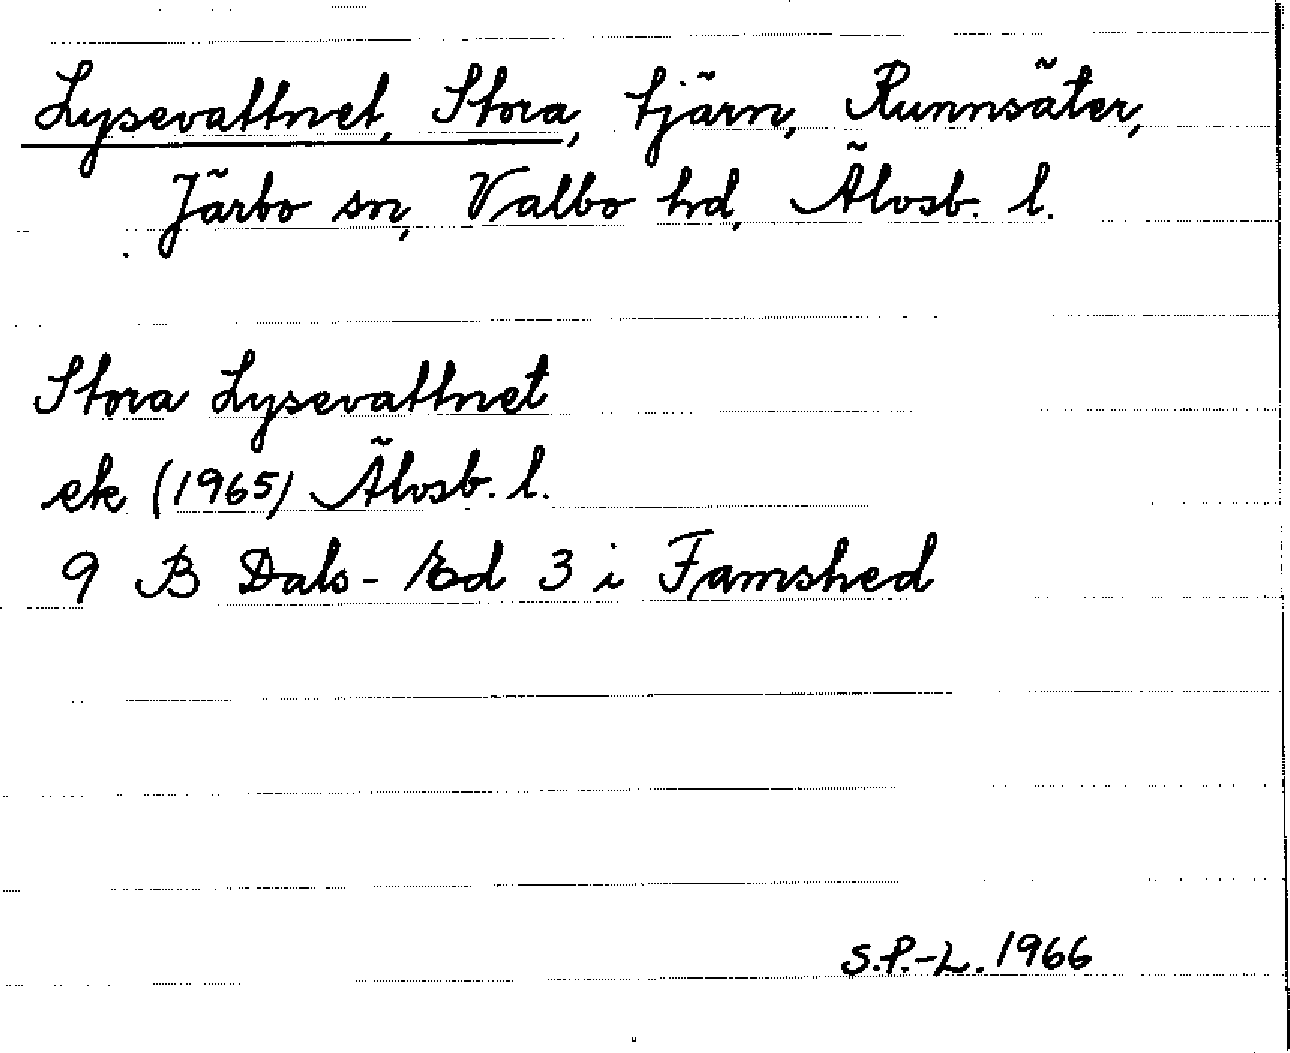 Lysevattnet, Stora, tjärn, Runnsäter,
Järbo sn, Valbo hd, Älvsb. l.
Stora Lysevattnet
ek (1965) Älvsb. l.
9 B Dals-Ed 3 i Famshed
S.P.-L. 1966